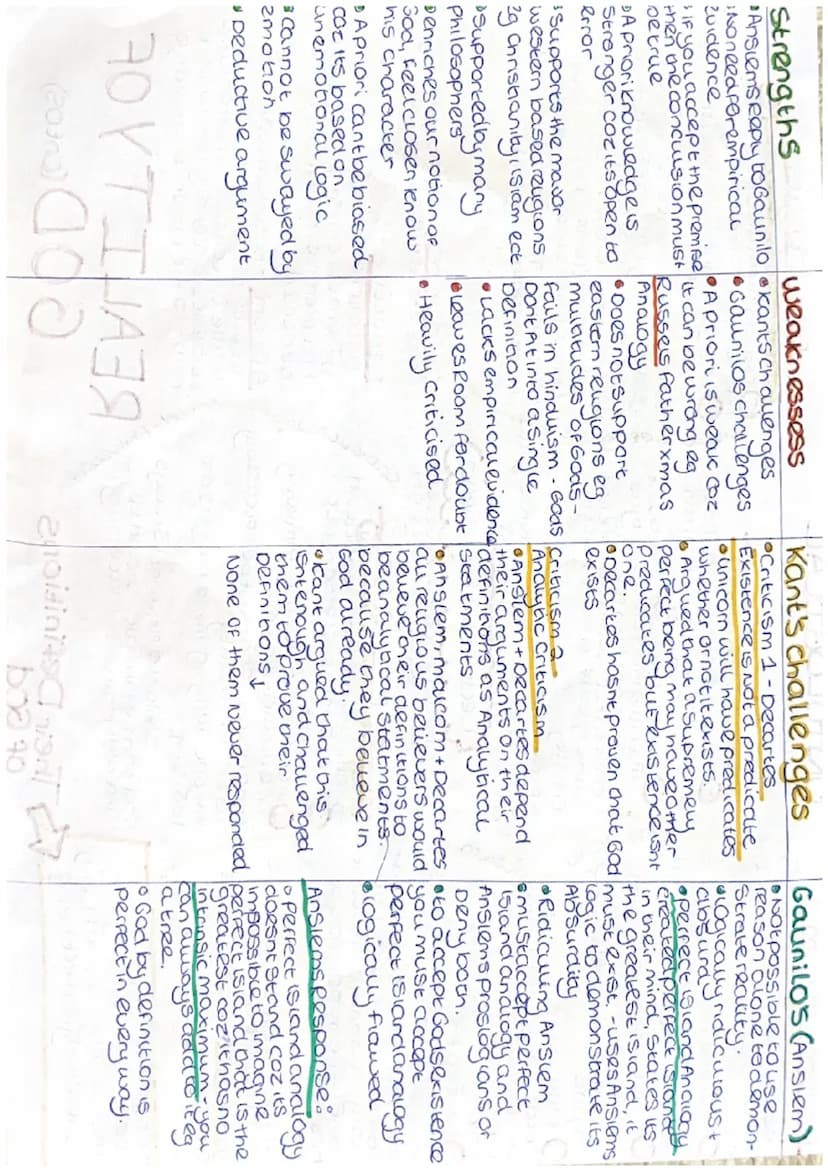 Strengths
• Anslems reply to Gaunilo
• No need for empirical
evidence
• if you accept the premise
then the conclusion must
be true
• A priori knowledge is
stronger coz its open to
error
• Supports the major
western based religions
eg Christianity, islam ect
• Supported by many
Philosophers
• enriches our notion of
God, feel closer, know
his character
• A priori cant be biased
coz its based on
unemotional logic
• cannot be swayed by
emotion
• Deductive argument
weaknessess
• Kants challenges
• Gaunilos challenges
• A priori is weak coz
it can be wrong eg
Russels Father xmas
Analogy
• Does not support
eastern religions eg
multitudes of Gods -
fails in hinduism - Gods
Dont fit into a single
Definition
• Lacks empirical evidence
• leaves Room for doubt
• Heavily Criticised
Kant's challenges
• Criticism 1 - Decartes
Existence is Not a predicate
• unicorn will have predicates
whether or not it exists
• Argued that a supremely
perfect being may have other
predicates but existence isnt
one.
• Decartes hasnt proven that God
exists
Criticism 2
Analytic Criticism
• Anslem + Decartes depend
their arguments on their
definitions as Analytical
Statments
• Anslem, malcom + Decartes
all religious believers would
believe their definitions to
be analytical statments
because they believe in
God already.
• Kant argued that this
isnt enough and challenged
them to prove their
Definitions ↓
None of them Never responded
Gaunilos (Anslem)
• Not possible to use
reason alone to demon-
strate reality.
• Logically ridiculous +
absurd
• perfect island Analogy
created perfect island
in their mind, states its
the greatest island, it
must exist - uses Anslems
logic to demonstrate its
Absurdity
• Ridiculing Anslem
• must accept perfect
island analogy and
Anslems proslogions or
Deny both.
• to accept Gods existence
you must accept
perfect island analogy
• logically flawed
Anslems Response:
• perfect island analogy
doesnt stand coz its
impossible to imagine
perfect island that is the
greatest coz it has no
intrinsic maximum - you
can always add to it eg
a tree.
• God by definition is
perfect in every way.
REALITY OF
GOD
Their Definitions
of God